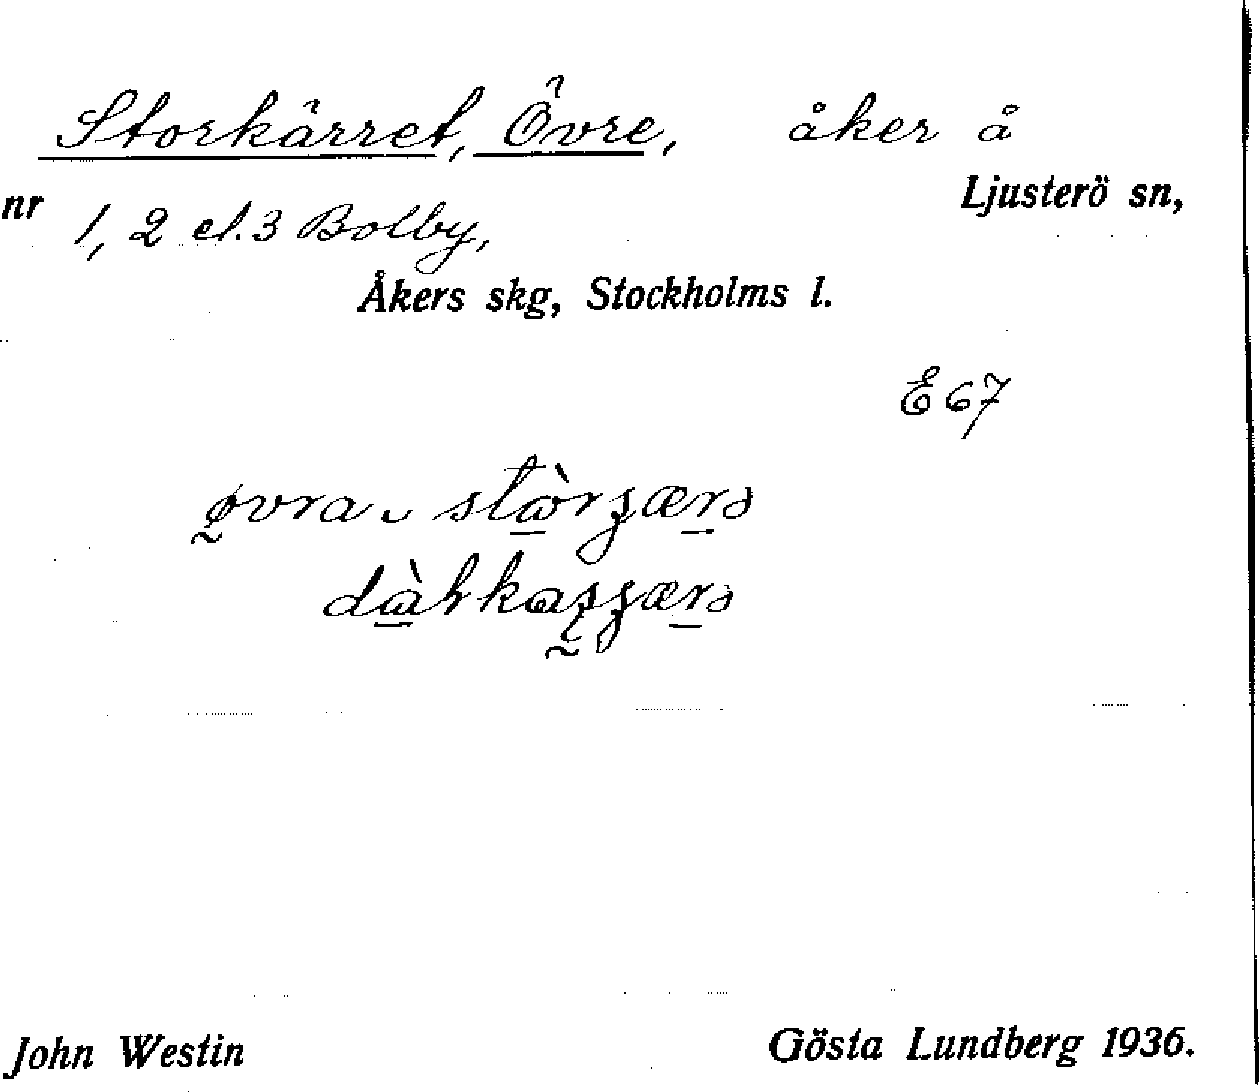 Storkärret, Övre, åker å
nr 1, 2 el. 3 Bolby, Ljusterö sn,
Åkers skg, Stockholms l.
E 67
John Westin Gösta Lundberg 1936.